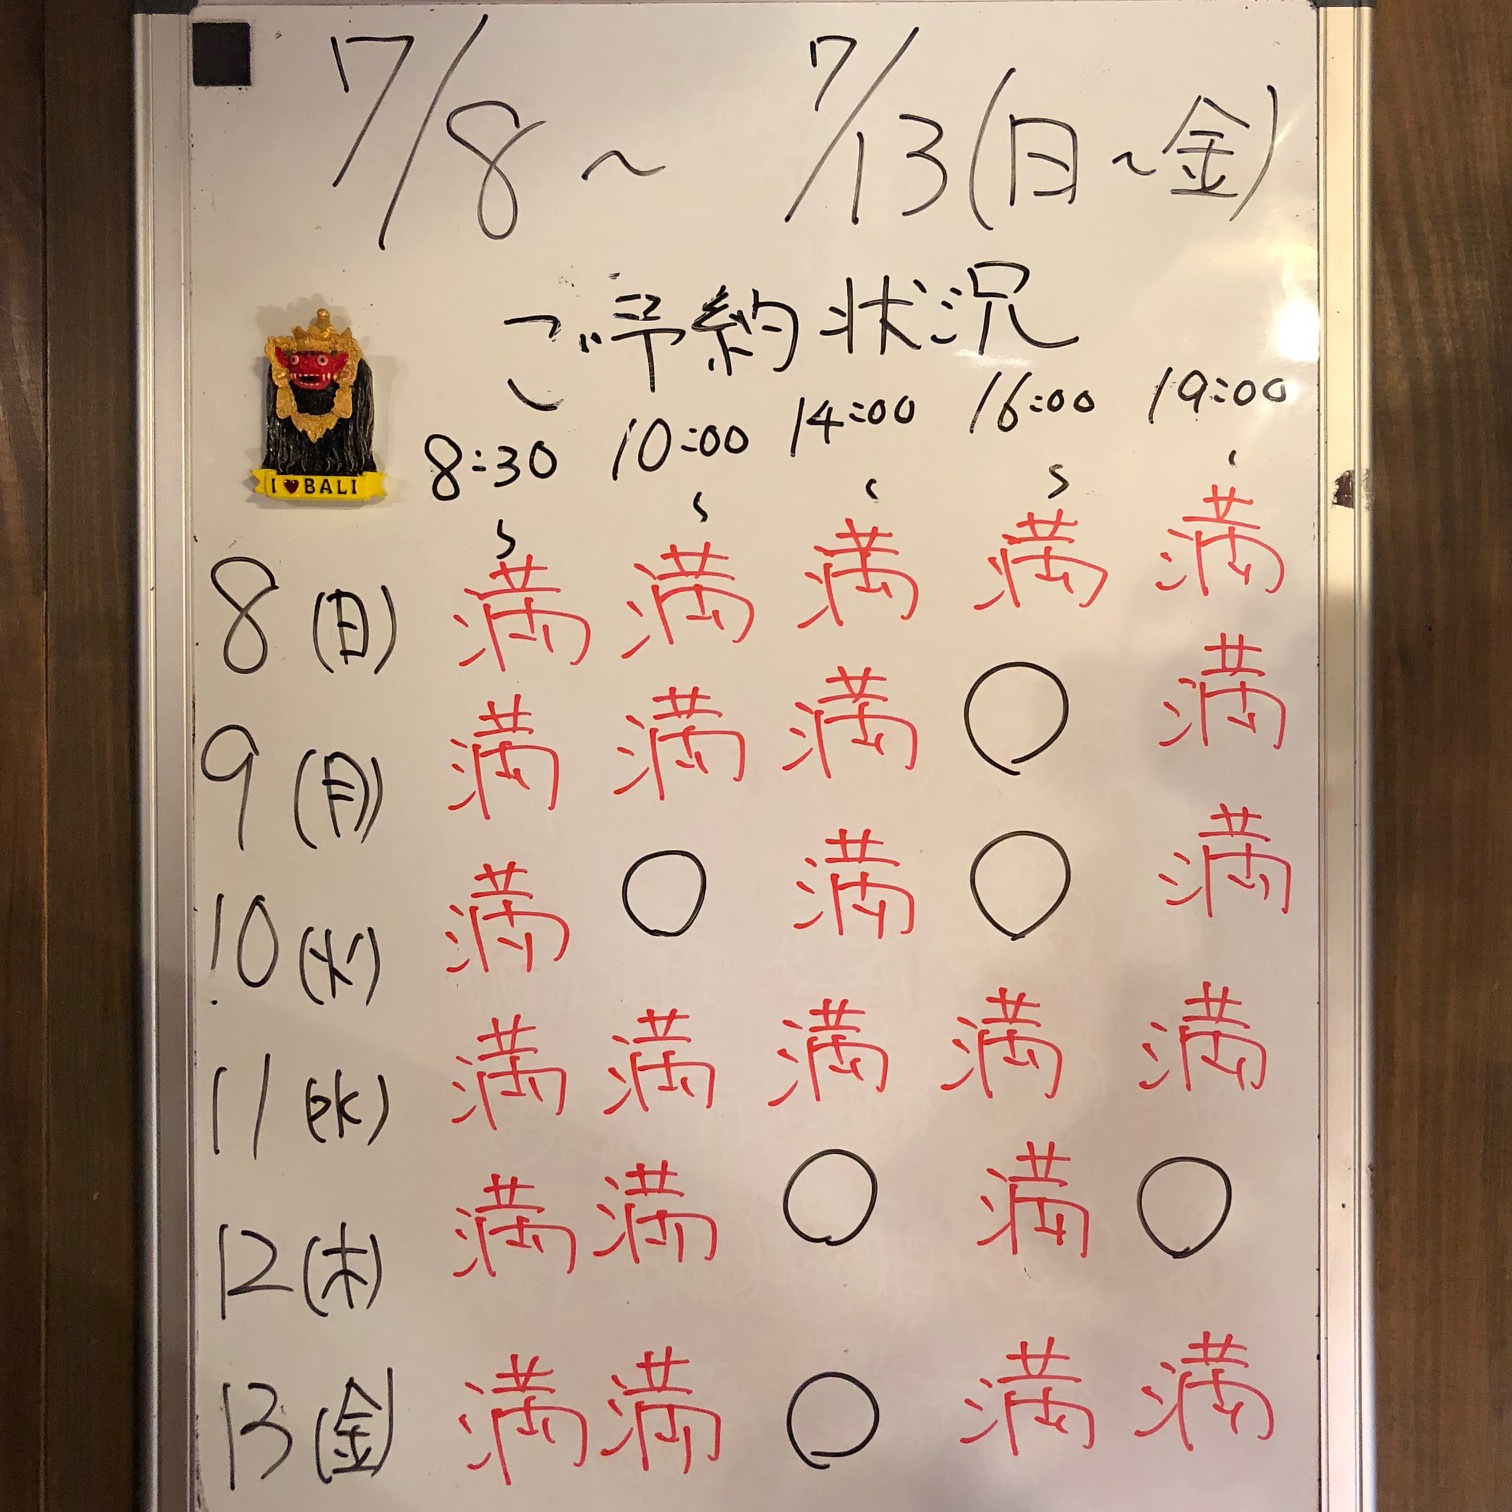 7/8〜7/13(日〜金)
ご予約状況
8:30〜 10:00〜 14:00〜 16:00〜 19:00〜
I ♥ BALI
8(日) 満 満 満 満 満
9(月) 満 満 満 ○ 満
10(火) 満 ○ 満 ○ 満
11(水) 満 満 満 満 満
12(木) 満 満 ○ 満 ○
13(金) 満 満 ○ 満 満